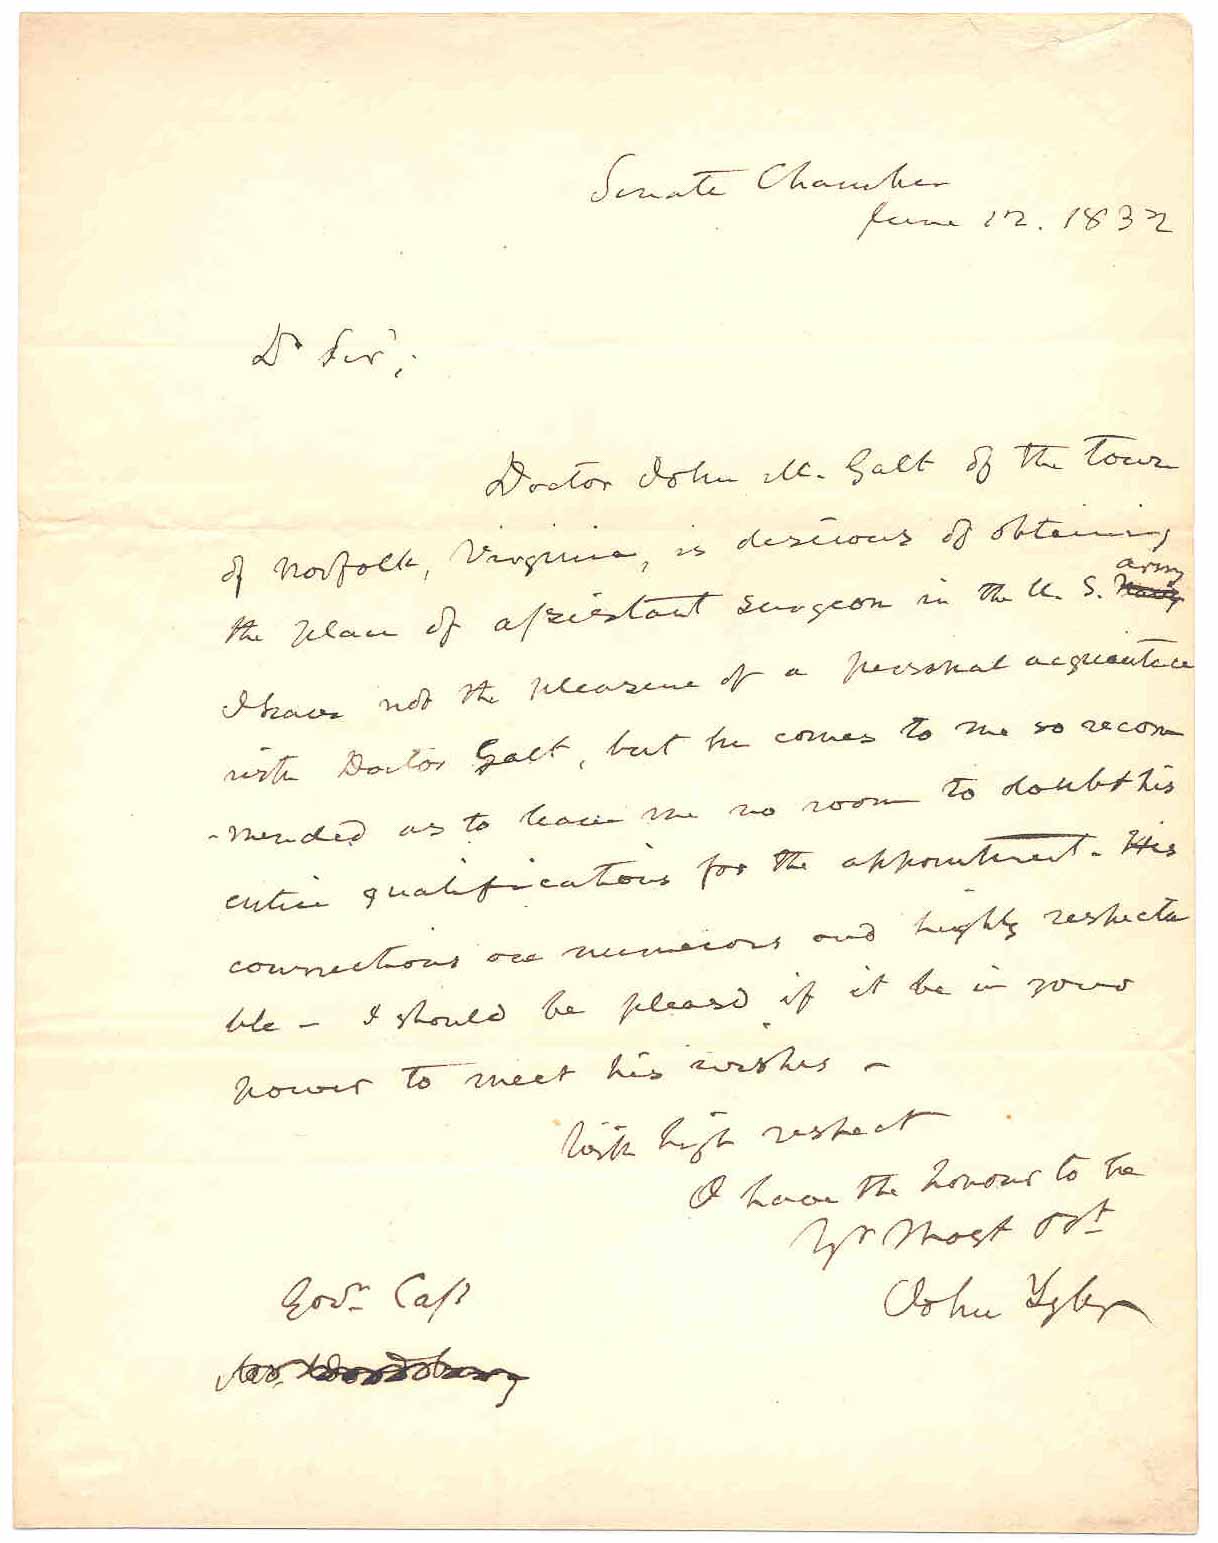 Senate Chamber
June 12. 1832
Dr Sir,
Doctor John M. Galt of the town
of Norfolk, Virginia, is desirous of obtaining
army
the place of assistant surgeon in the U. S. Navy
I have not the pleasure of a personal acquaintance
with Doctor Galt, but he comes to me so recom
-mended as to leave me no room to doubt his
entire qualifications for the appointment. His
connections are numerous and highly respecta
ble - I should be pleasd if it be in your
power to meet his wishes -
With high respect
I have the honour to be
Yr Most Obt
John Tyler
Govr Cass
Woodbury